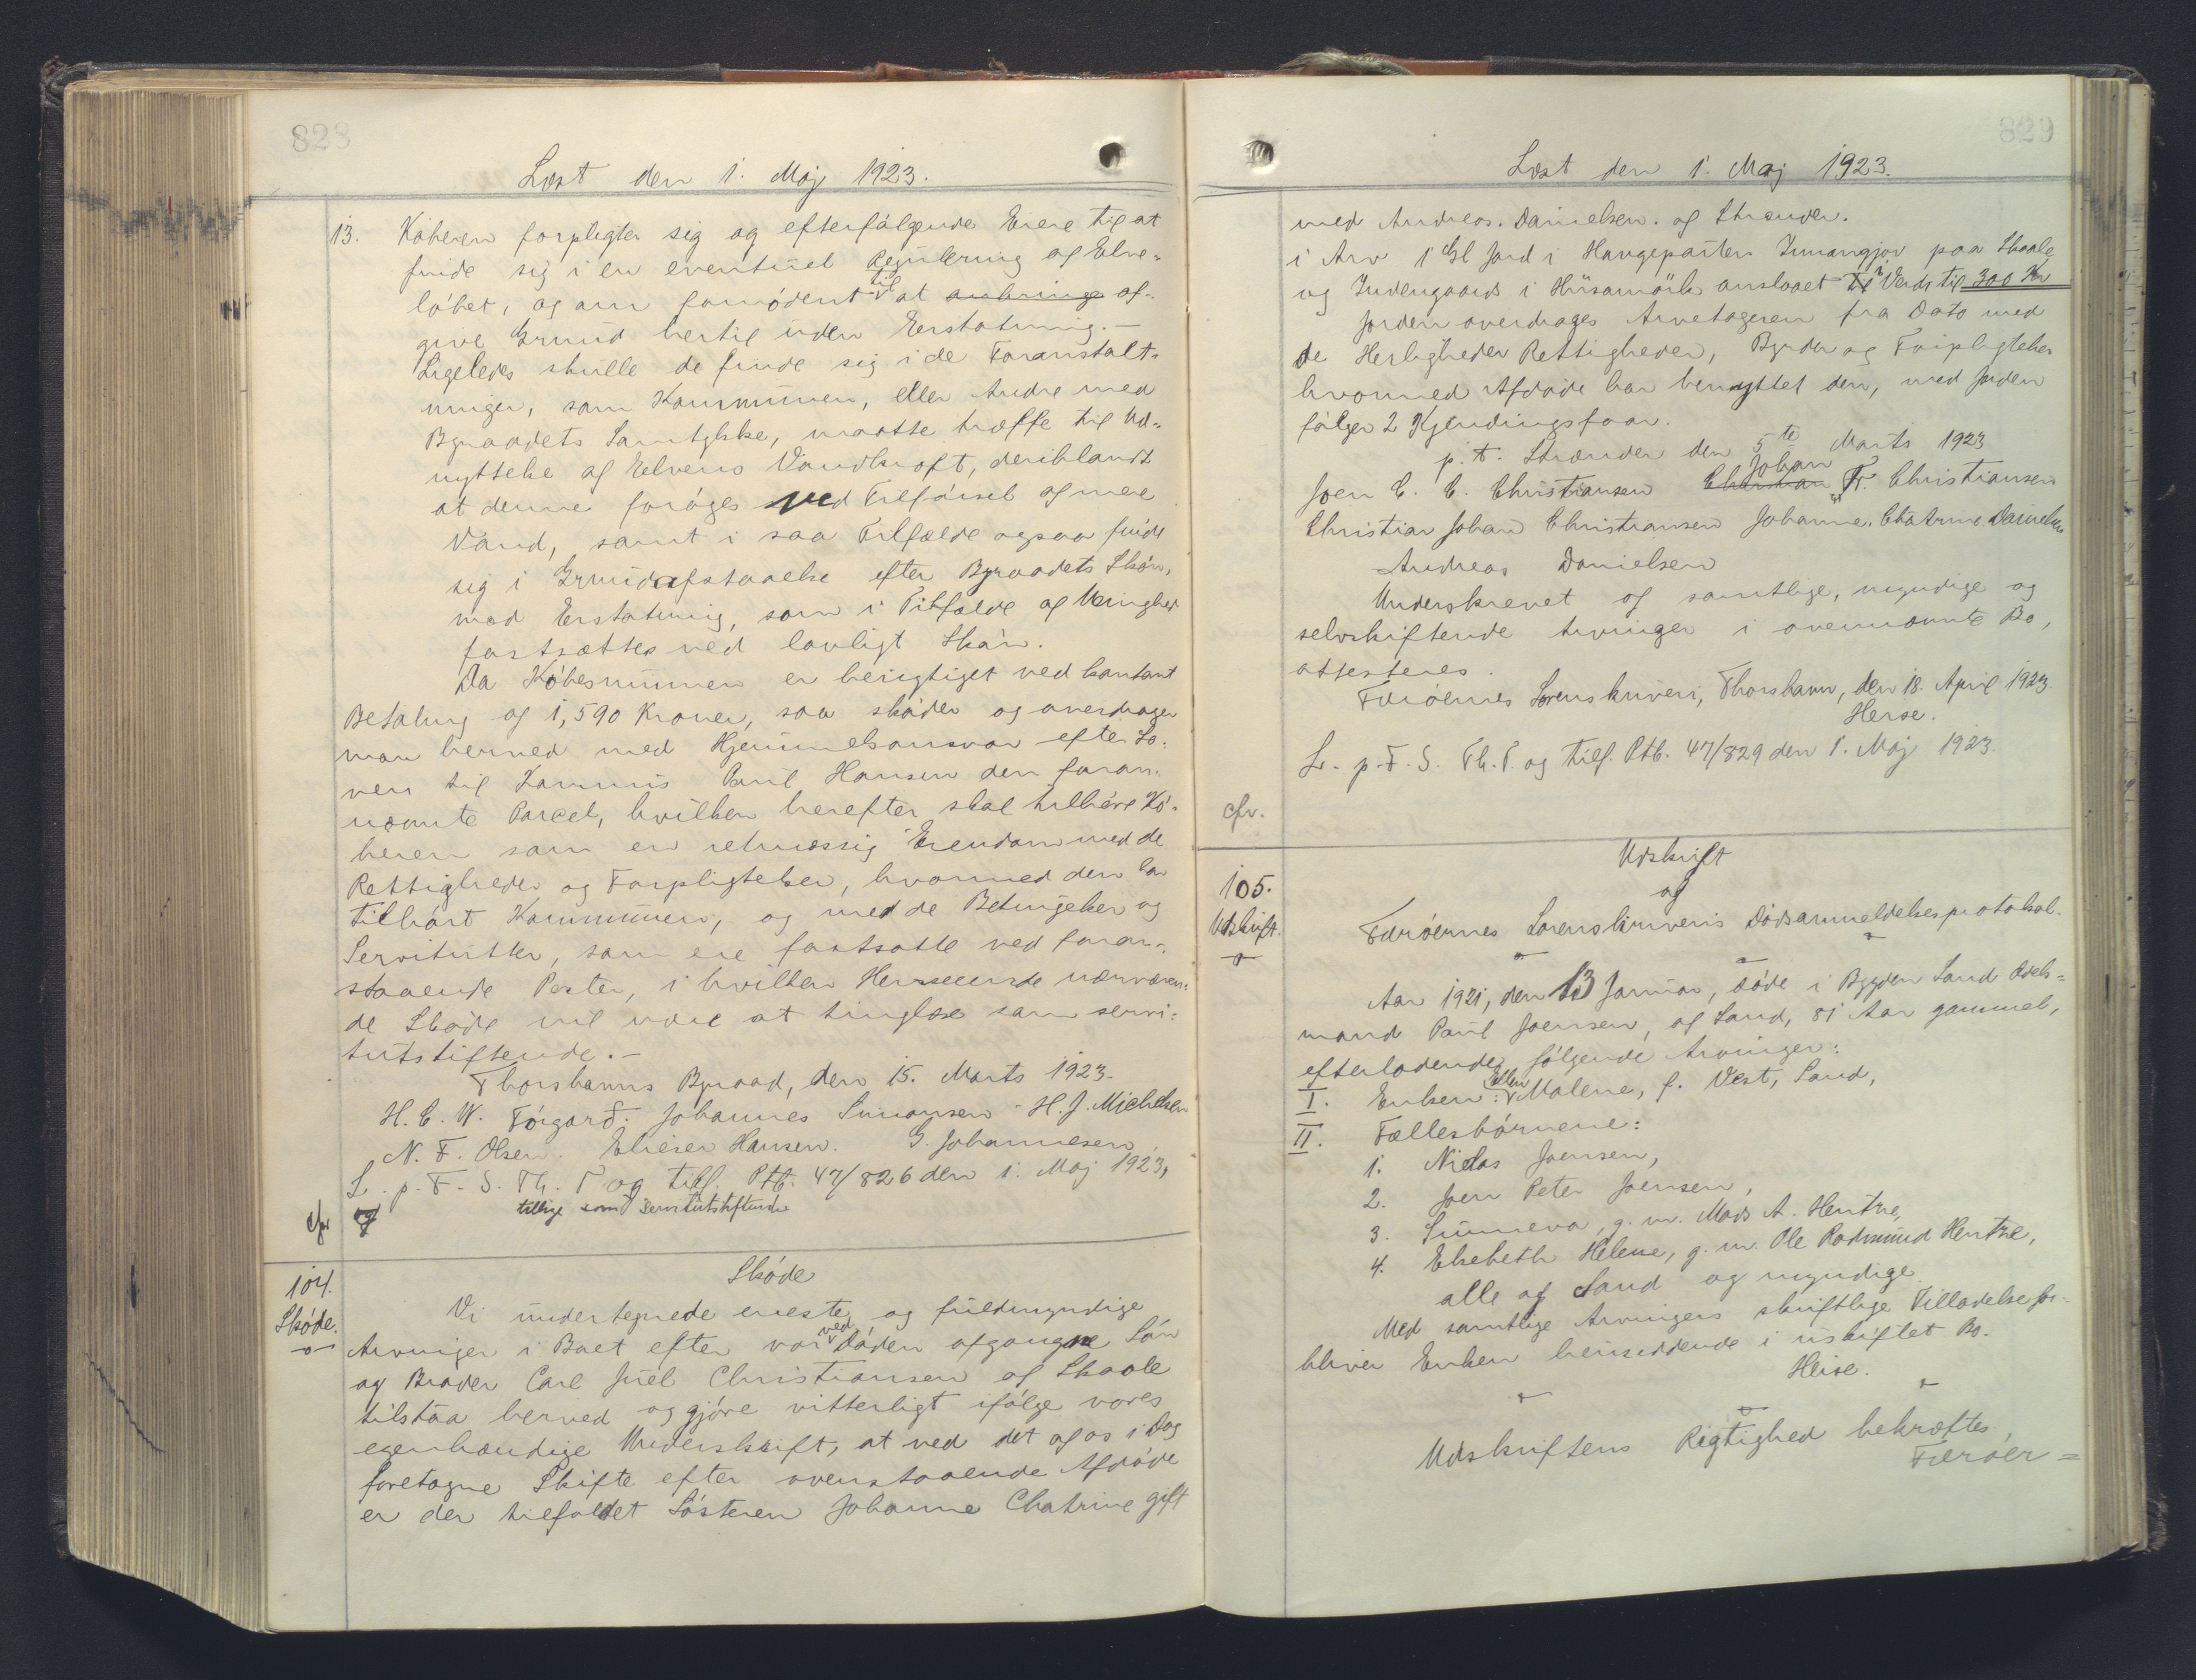 828
Læst den 1. Maj 1923.
13. Köberen forpligter sig og efterfölgende Eiere til at
finde sig i en eventuel Regulering af Elve-
löbet, og om fornödent til at anbringe af-
give Grund hertil uden Erstatning.-
Ligeledes skulle de finde sig i de Foranstalt-
ninger, som Kommunen, eller Andre med
Byraadets Samtykke, maatte træffe til Ud-
nyttelse af Elvens Vandkraft, deriblandt
at denne foröges ved Tilförsel af mere
Vand, samt i saa Tilfælde ogsaa finde
sig i Grundafstaaelse efter Byraadets Skön,
mod Erstatning, som i Tilfælde af Uenighed
fastsættes ved lovligt Skön.
Da Köbesummen er berigtiget ved kontant
Betaling af 1,590 Kroner, saa sköder og overdrager
man herved med Hjemmelsansvar efter Lo-
ven til Poul Hansen den foran-
nævnte Parcel, hvilken herefter skal tilhöre Kö-
beren som en retmæssig Eiendom med de
Rettigheder og Forpligtelser, hvormed den har
tilhört Kommunen, og med de Betingelser og
Servitutter, som ere fastsatte ved foran-
staaende Poster, i hvilken Henseende nærværen-
de Sköde vil være at tinglæse som servi-
tutstiftende.-
Thorshavns Byraad, den 15. Marts 1923.
H. C. W. Tórgarð. Johannes Simonsen H. J. Michelsen
N. F. Olsen. Elieser Hansen. G. Johannesen.
L. p. F. S. Th. T og tilf. Ptb. 47/826 den 1. Maj 1923,
tillige som servitutstiftende
cfr
104.
Sköde.
Sköde
Vi undertegnede eneste og fuldmyndige
Arvinger i Boet efter vor ved Döden afgangne Sön
og Broder Carl Juel Christiansen af Skaale
tilstaa herved og gjöre vitterligt ifölge vores
egenhændige Underskrift, at ved det af os i Dag
foretagne Skifte efter ovenstaaende Afdöde
er der tilfaldet Sösteren Johanne Chatrine gift
829
Læst den 1. Maj 1923.
med Andreas. Danielsen. af Strænder.
i Arv 1 Gl Jord i Haugeparten Innangjov paa Skaale
og Indengaards i Húsamörk anslaaet Til i Værdi til 300 Kr
Jorden overdrages Arvetageren fra Dato med
de Herligheder Rettigheder, Byrder og Forpligtelser
hvormed Afdöde har benyttet den, med Jorden
fölger 2 Kjendingsfaar.
p.t. Strænder den 5te Marts 1923
Joen C. C. Christiansen Christian Johan Fr. Christiansen
Christian Johan Christiansen Johanne. Chatrine Danielsen
Andreas Danielsen
Underskrevet af samtlige, myndige og
selvskiftende Arvinger i ovennævnte Bo,
attesteres.
Færöernes Sorenskriveri, Thorshavn, den 18. April 1923.
Heise.
L. p. F. S. Th. T. og tilf. Ptb. 47/829 den 1. Maj 1923.
cfr.
105.
Udskrift.
Udskrift
af
Færöernes Sorenskriveris Dödsanmeldelsesprotokol.
Aar 1921, den 13 Januar, döde i Bygden Sand Odels-
mand Poul Joensen, af Sand, 81 Aar gammel,
efterladende fölgende Arvinger:
I. Enken: Ellen Malene, f. Vest, Sand,
II. Fællesbörnene:
1. Niclas Joensen,
2. Joen Peter Joensen,
3. Sunneva, g. m. Mads A. Hentze,
4. Elsebeth Helene, g. m. Ole Rodmund Hentze,
alle af Sand og myndige
Med samtlige Arvingers skriftlige Tilladelse for-
bliver Enken hensiddende i uskiftet Bo.
Heise.
Udskriftens Rigtighed bekræftes,
Færöer=